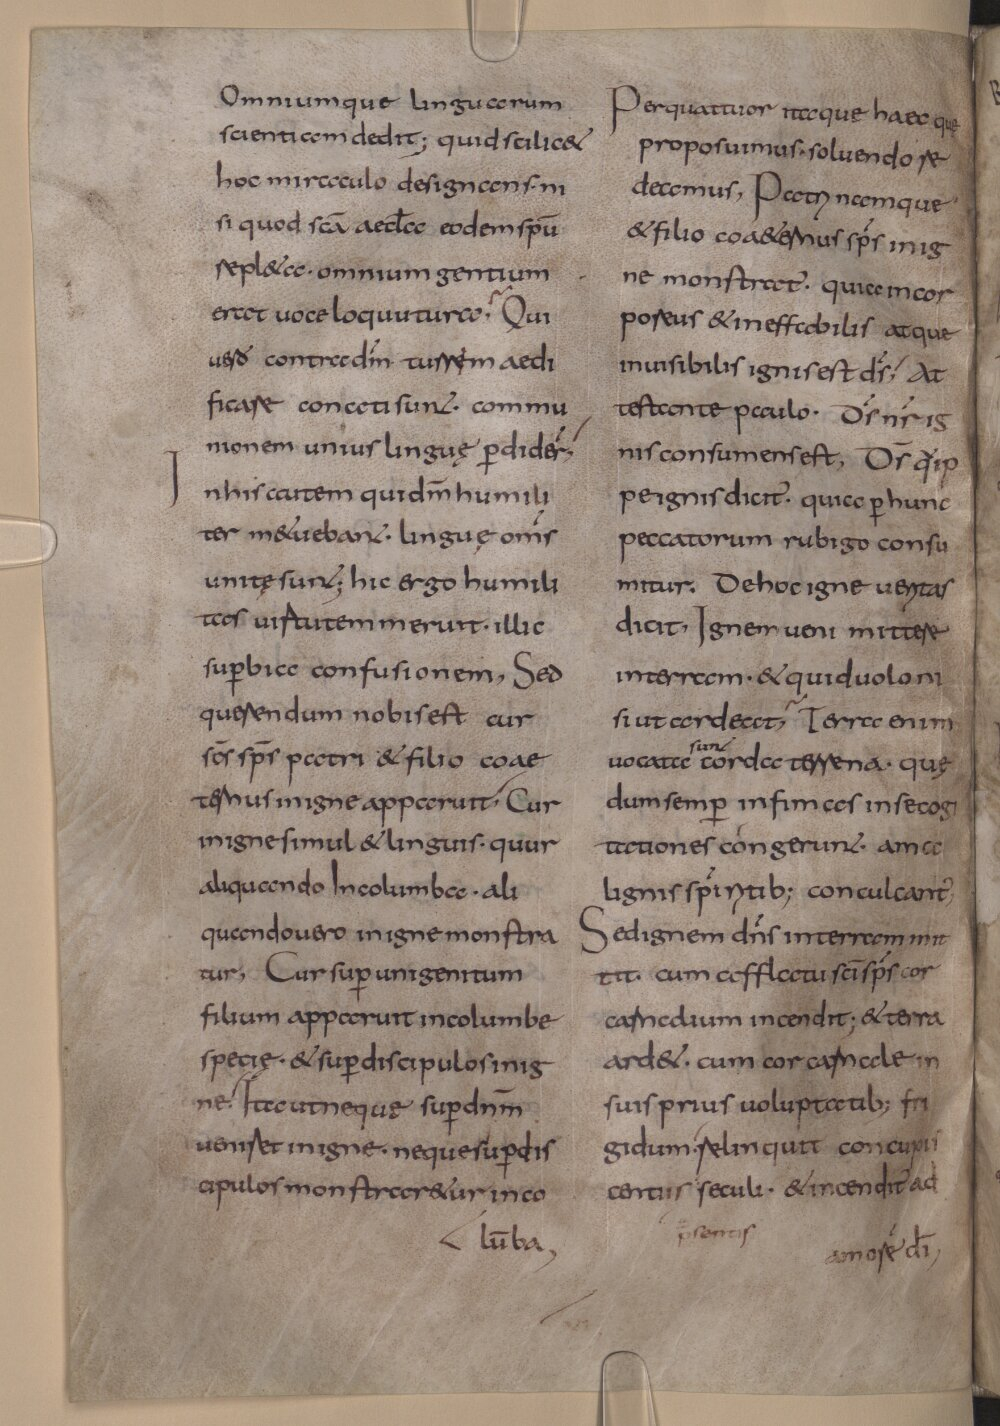 Omniumque linguarum
scientiam dedit; quid scilic&
hoc miraculo designans. ni
si quod scā aeclㅤa eodem spū
repl&a. omnium gentium
erat voce loquutura. Qui
uero contra dm̄ turrem aedi
ficare conati sunt. commu
nionem unius linguę ꝑdider̄;
In his autem qui dn̄m humili
ter m&uebant. linguę om̄s
unitę sunt; hic ergo humili
tas uirtutem meruit. illic
suꝑbia confusionem, Sed
querendum nobis est cur
scs̄ sps̄ patri & filio coae
ternus in igne apparuit. Cur
in igne simul & linguis. quur
aliquando In columba. ali
quando uero in igne monstra
tur, Cur suꝑ unigenitum
filium apparuit in columbe
specie. & suꝑ discipulos in ig
ne. Ita ut neque suꝑ dn̄m
veniret in igne. neque suꝑ dis
cipulos monstrar&ur in co
lūba,
Per quattuor itaque haec que
proposuimus. soluendo re
damus, Patri namque
& filio coa&ernus sps̄ in ig
ne monstrat̄. quia incor
poreus & ineffabilis atque
inuisibilis ignis est ds̄; At
testante paulo. Ds̄ nr̄ ig
nis consumens est, Ds̄ quip
pe ignis dicit̄. quia ꝑ hunc
peccatorum rubigo consu
mitur. De hoc igne ueritas
dicit, Ignem ueni mittere
in terram. & quid uolo ni
si ut ardeat, Terra enim
uocata sunt corda terrena. quę
dum semꝑ infimas in se cogi
tationes congerunt. a ma
lignis spiritib; conculcant̄,
Sed ignem dn̄s in terram mit
tit. cum afflatu sci sps̄ cor
carnalium incendit; & terra
ard&. cum cor carnale in
suis prius uoluptatib; fri
gidum. relinquit concupis
centias seculi. & incendit̄ ad
p̄sentis
amorē dī,